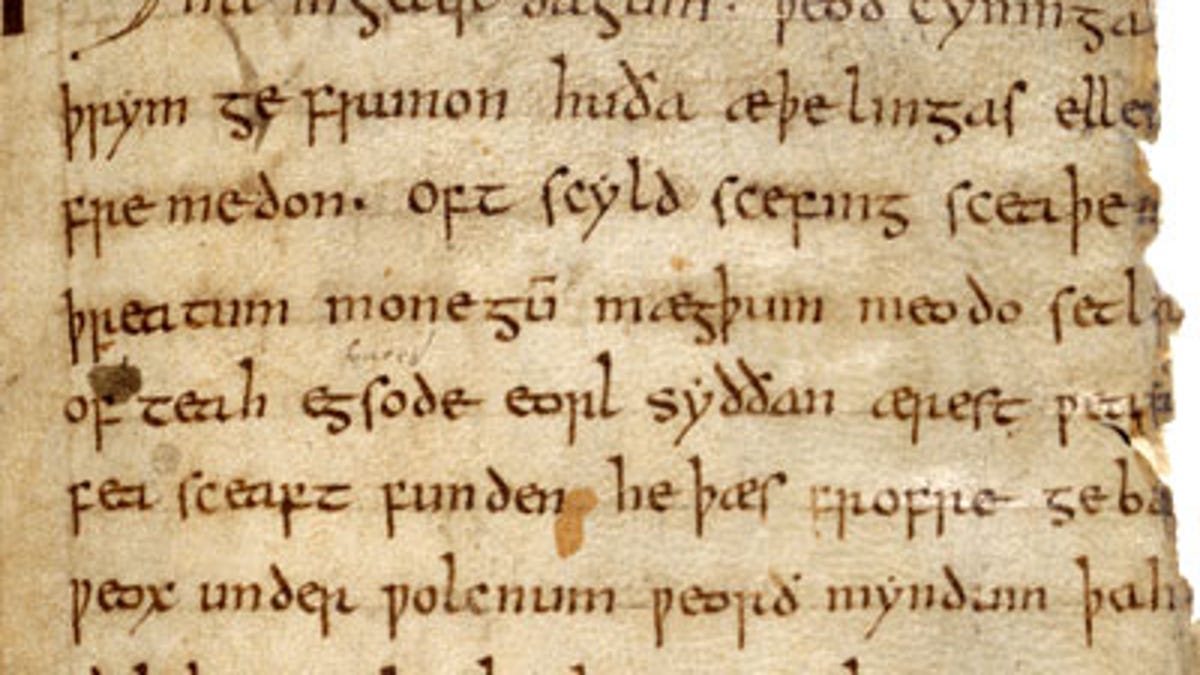 na ingear dagum · þeod cyninga
þrym ge frunon huða æþelingas elle
fre medon · oft scyld scefing sceaþe
þreatum monegū mægþum meodo setla
of teah egsode eorl syððan ærest ƿear
fea sceaft funden he þæs frofre geba
ƿeox under ƿolcnum ƿeorð myndum þah